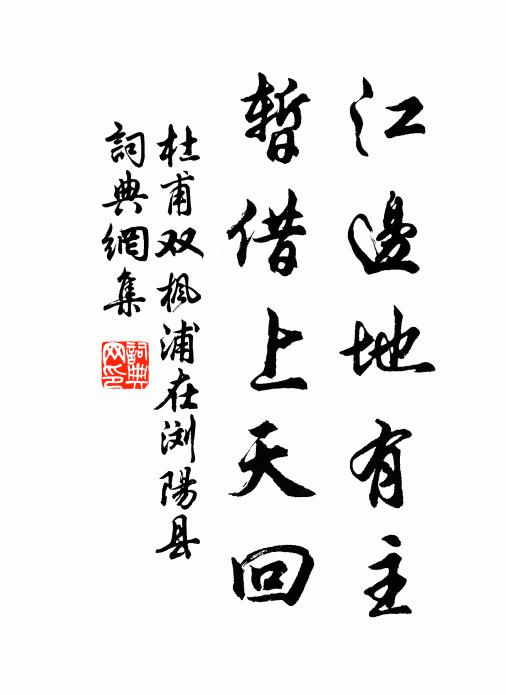 江邊地有主
暫借上天回
杜甫双楓浦在浏陽县
詞典網集
詞典网印